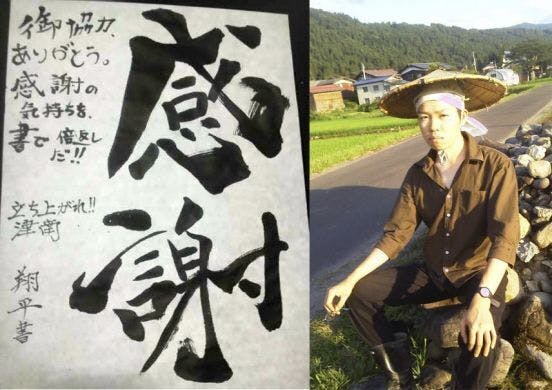 感謝
御協力、
ありがとう。
感謝の
気持ちを、
書で倍返し
だ!!
立ち上がれ!!
津南
翔平書